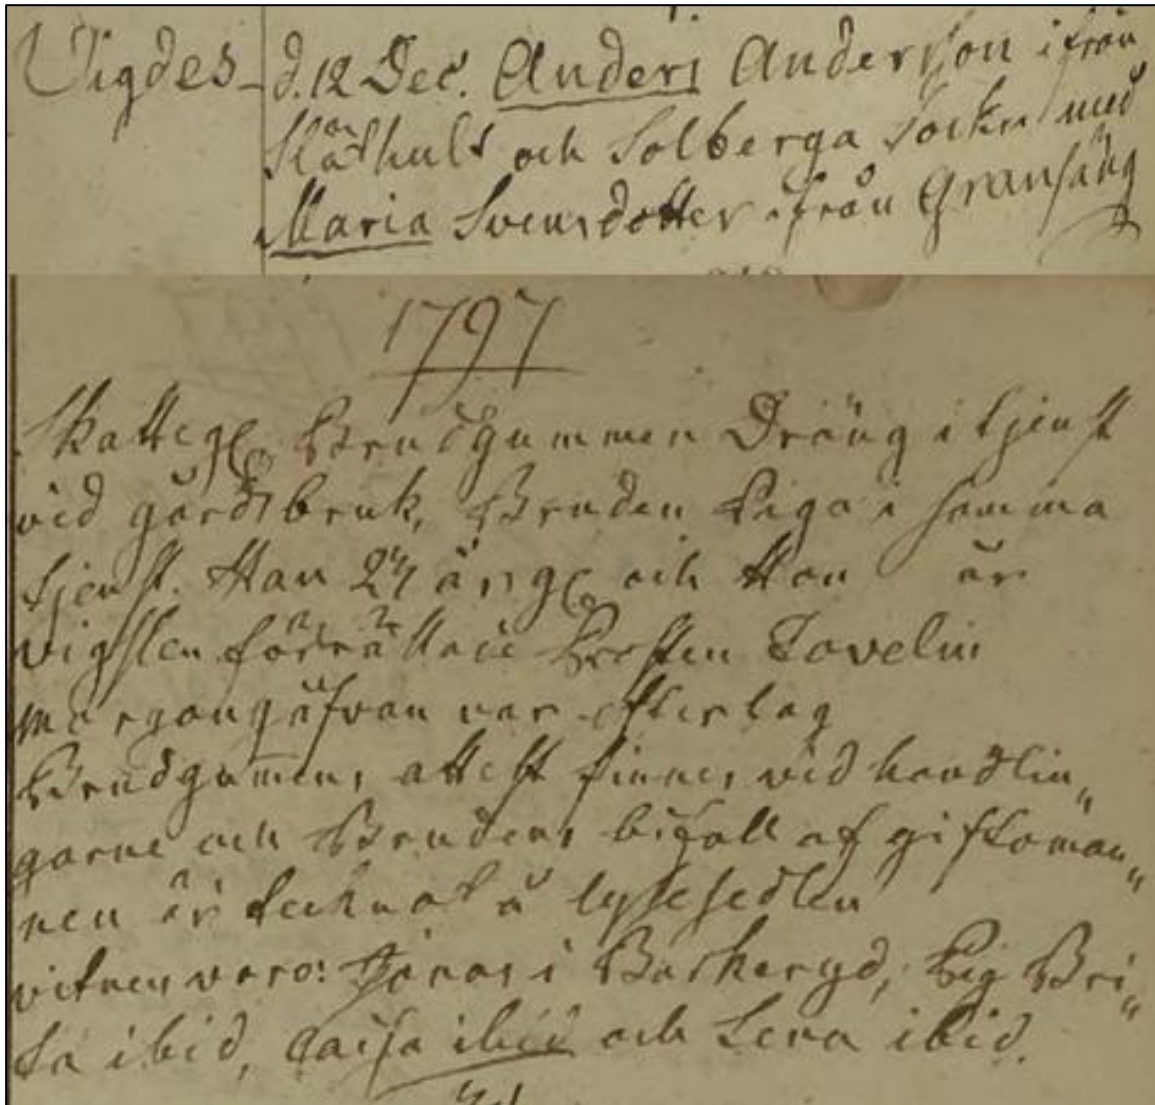 Vigdes - d. 12 Dec. Anders Anderson ifrån
Slätthult och Solberga Sockn med
Maria Svensdotter ifrån Gransäng
1797
Skatteg Brudgummen Dräng i tjenst
vid gårdsbruk, Bruden Piga i samma
tjenst. Han 24 år g och Hon år
Vigslen förrättade Prosten Tavelin
morgongåfvan var efter lag
Brudgumens attest finnes vid handlin„
garne och Brudens bifall af giftoman„
nen är tecknat å lysesedlen
vitnen voro: Jonas i Barkeryd, Pig Bri„
ta ibid, Caisa ibid och Lena ibid.